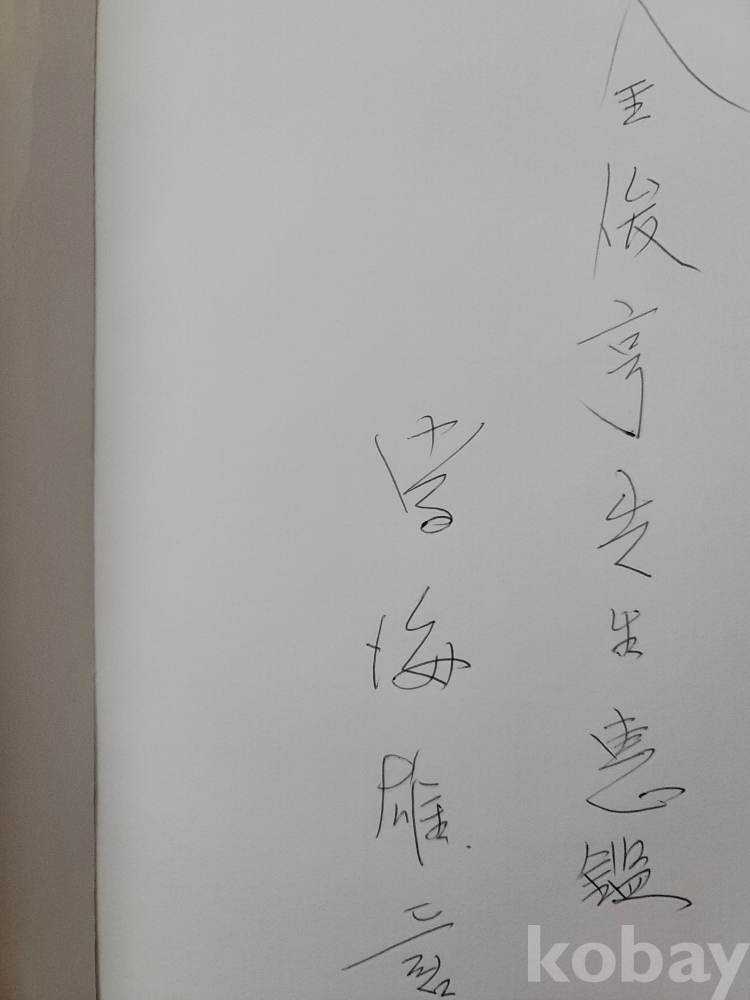 全俊亨先生惠鑑
海雄
kobay